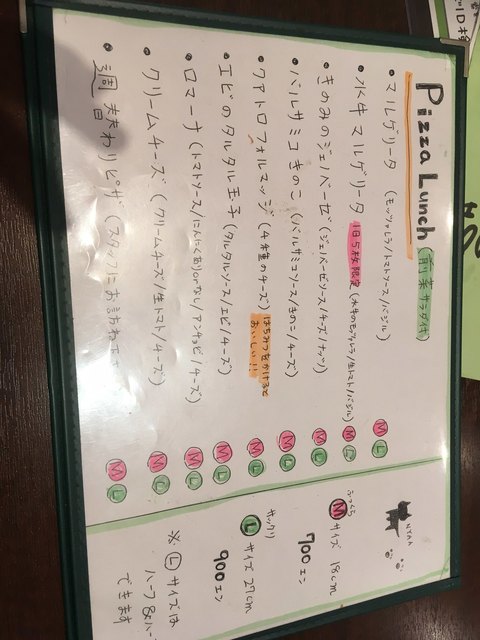 Pizza Lunch (前菜サラダ付)
• マルゲリータ (モッツァレラ/トマトソース/バジル) M L
• 水牛マルゲリータ 1日5枚限定 (水牛のモッツァレラ/生トマト/バジル) M L
• きのみのジェノベーゼ (ジェノベーゼソース/チーズ/ナッツ) M L
• バルサミコきのこ (バルサミコソース/きのこ/チーズ) M L
• クアトロフォルマッジ (4種のチーズ) はちみつをかけると おいしい!! M L
• エビのタルタル玉子 (タルタルソース/エビ/チーズ) M L
• ロマーナ (トマトソース/にんにくありorなし/アンチョビ/チーズ) M L
• クリームチーズ (クリームチーズ/生トマト/チーズ) M L
• 週 日 替わりピザ (スタッフにお訪ね下さ M L
NYAA
ふっくら
M サイズ 18cm
700エン
サックリ
L サイズ 27cm
900エン
※ L サイズは
ハーフ&ハー
できます